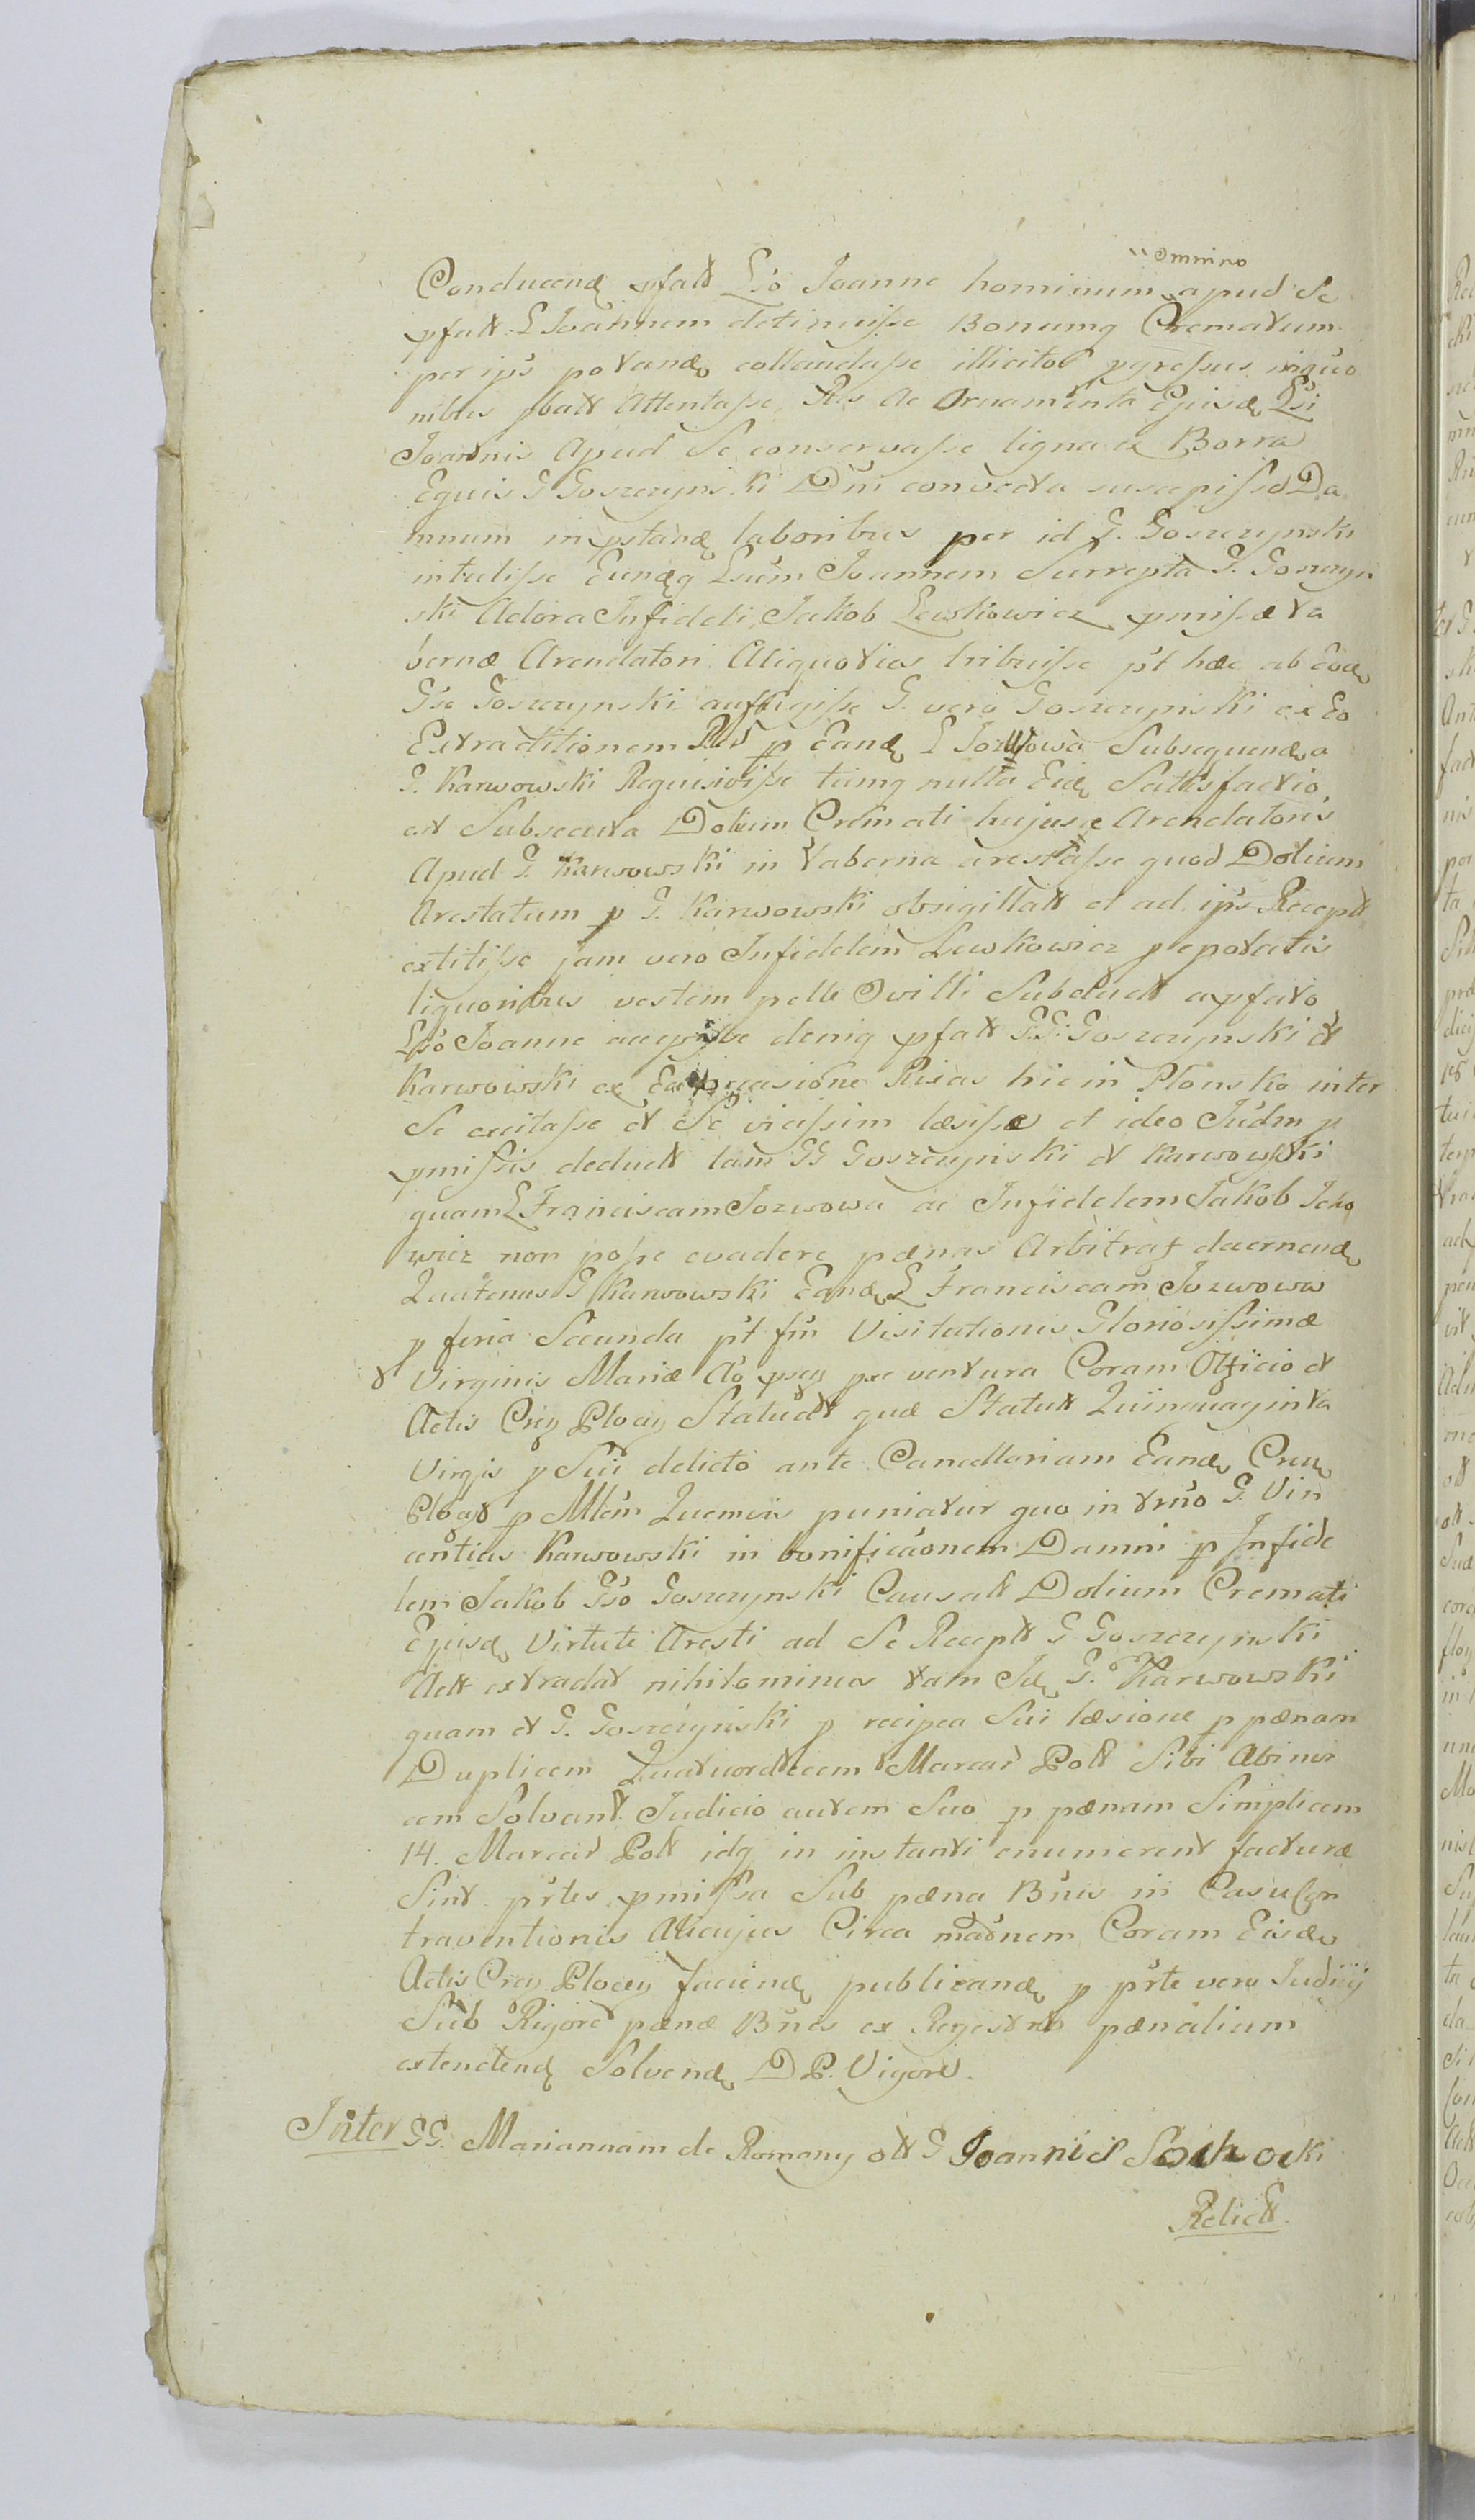 omnino
Conducend pfatt Lso Joanne hominum apud Se
pfatt L Joannem detinuisse Bonumq Crematum
per ips potand collaudasse illicitos pgressus inquo
nibus pbatt Attentasse, Res ac Ornamenta Ejusd Lsi
Joannis Apud Se conservasse ligna ex Borra
Equis G Goszczynski Dni convecta suscepisse Da
mnum in pstand laboribus per id G. Goszczynski
intulisse Eundq Lsum Joannem Surrepta G. Goszczyn
ski Adora Infideli Jakob Lewkowicz pmissæ ta
bernæ Arendatori Aliquoties tribuisse pt hæc ab Eod
Gso Goszczynski aufugisse G. vero Goszczynski ex Eo
Extraditionem Res p Eand L Jozwowa Subsequend a
G. Karwowski Requisivisse tumq nulla Eid Satisfactio
est Subsecuta Dolium Cremati hujusce Arendatoris
Apud G. Karwowski in taberna arestasse quod Dolium
Arestatum p G. Karwowski obsigillatt et ad ips Receptt
extitisse jam vero Infidelem Lewkowicz p epotatis
liquoribus vestem pelle Ovilli Subductt a pfato
Lso Joanne accepisse deniq pfatt G.G. Goszczynski et
Karwowski ex Ea occasione Rixas hic in Plonsko inter
Se excitasse et Se vicissim læsisse et ideo Judm p
pmissis deductt tam GG Goszczynski et Karwowski
quam L Franciscam Jozwowa ac Infidelem Jakob Icko
wicz non posse evadere pænas Arbitraq decernend
Quatenus G Karwowski Eand L Franciscam Jozwowa
p feria Secunda pt fm Visitationis Gloriosissimæ
et Virginis Mariæ Ao psen pxe ventura Coram Officio et
Actis Cren Plocen Statuatt quæ Statutt Quinquaginta
Virgis p Sui delicto ante Cancellariam Eand Cren
Plocen p Mlem Quemvis puniatur quo in trno G. Vin
centius Karwowski in bonificaonem Damni p Infide
lem Jakob Gso Goszczynski Causatt Dolium Cremati
Ejusd Virtute Aresti ad Se Receptt G Goszczynski
Actt extradat nihilominus tam Id G. Karwowski
quam et G. Goszczynski p recipca Sui læsione p pænam
Duplicem Quatuordecem Marcas Poll Sibi Abinvi
cem Solvant. Judicio autem Suo p pænam Simplicem
14. Marcas Poll idq in instanti enumerent facturæ
Sint prtes pmissa Sub pæna Bnis in Casu Con
traventionis Alicujus Circa maõnem Coram Eisd
Actis Cren Plocen faciend publicand p prte vero Judicij
Sub Rigore pænæ Bnis ex Regestro pænalium
extendend Solvend D P. Vigore.
Inter GG. Mariannam de Romany ott G Joannis Sochocki
Relictt.